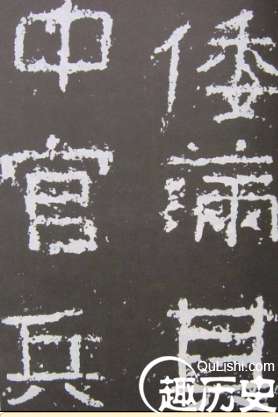 倭滿
中官兵
QuLishi.com
趣历史